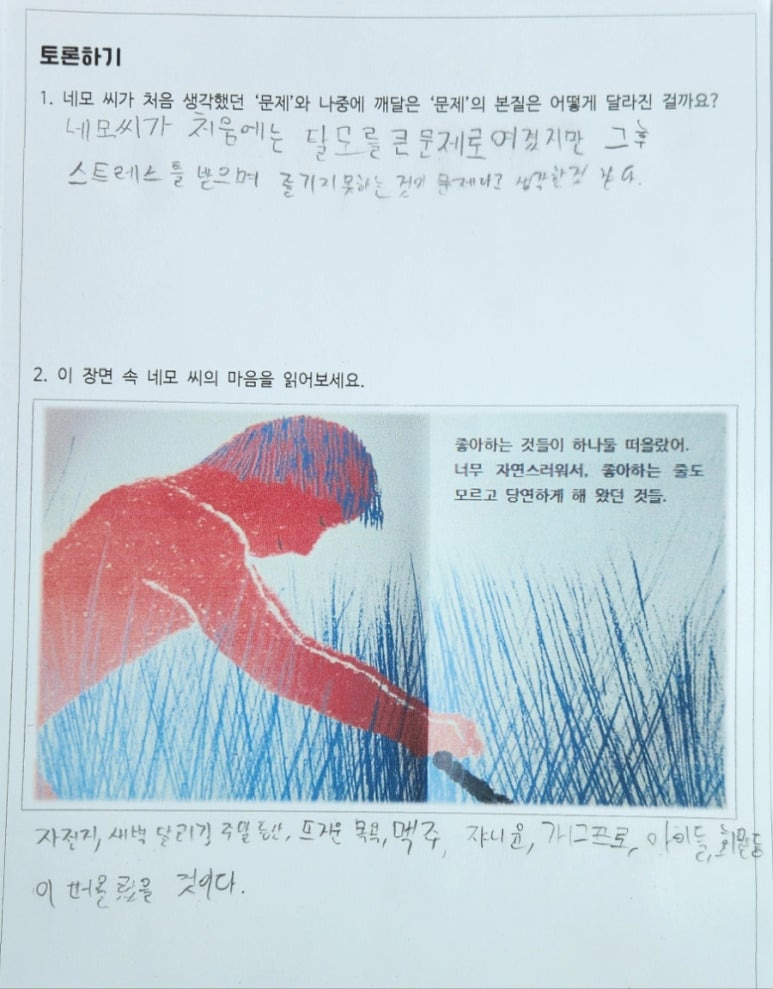 토론하기
1. 네모 씨가 처음 생각했던 '문제'와 나중에 깨달은 '문제'의 본질은 어떻게 달라진 걸까요?
네모씨가 처음에는 탈모를 큰 문제로 여겼지만 그 후
스트레스를 받으며 즐기지 못하는 것이 문제라고 생각한것 같다.
2. 이 장면 속 네모 씨의 마음을 읽어보세요.
좋아하는 것들이 하나둘 떠올랐어.
너무 자연스러워서, 좋아하는 줄도
모르고 당연하게 해 왔던 것들.
자전거, 새벽 달리기, 주말 등산, 뜨거운 목욕, 맥주, 쟈니 윤, 개그프로, 아이들,
이 떠올랐을 것이다.